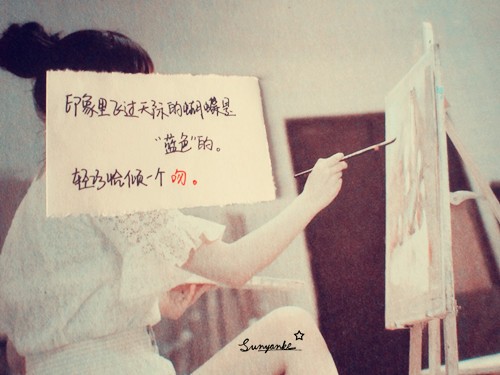 印象里飞过天际的蝴蝶是
"蓝色"的。
轻巧恰似一个吻。
Sunyanke